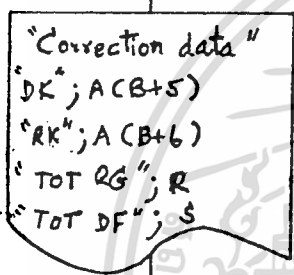 "Correction data"
"DK"; A(B+5)
"RK"; A(B+6)
"TOT RG"; R
"TOT DF"; S